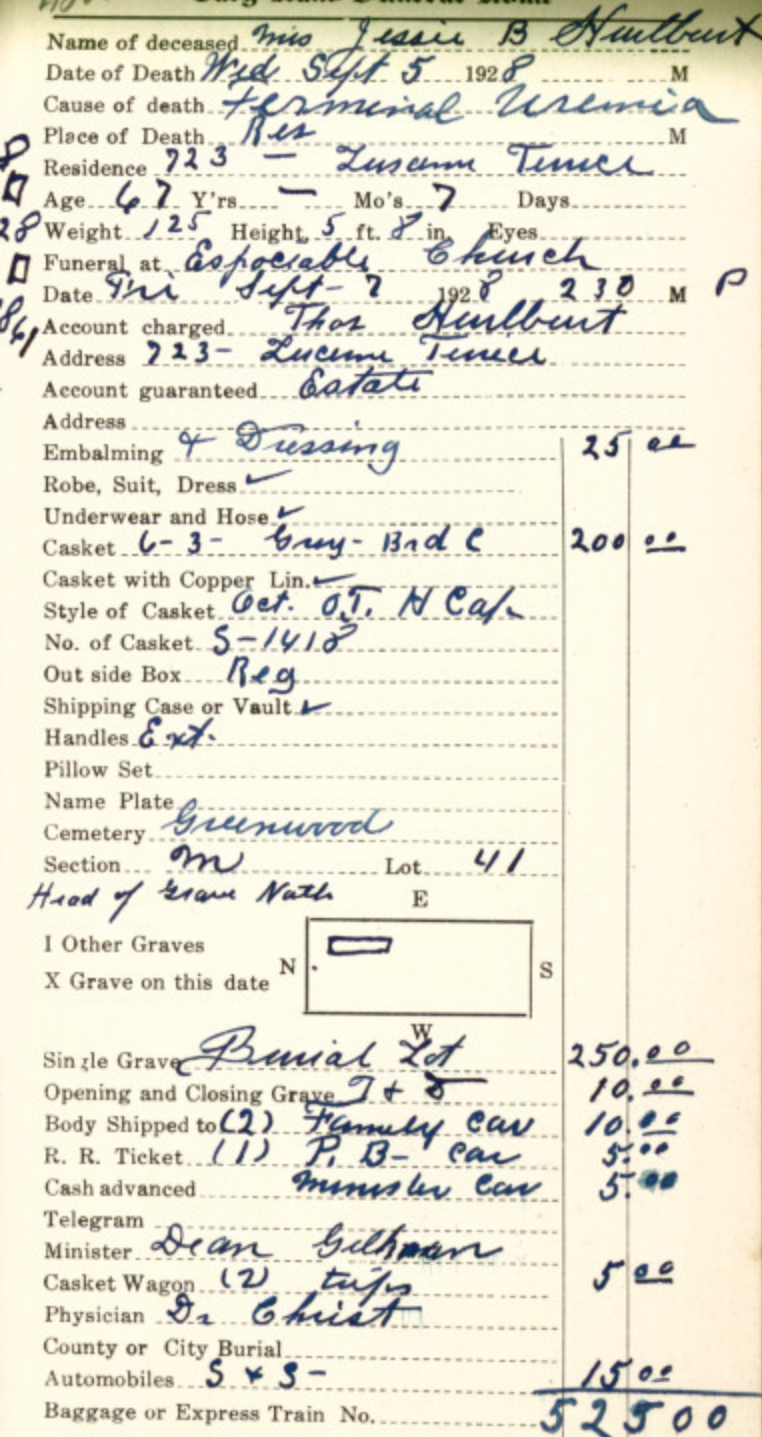 Name of deceased Mrs Jessie B Hurlburt
Date of Death Wed Sept 5 1928 M
Cause of death Terminal Uremia
Place of Death Res M
Residence 723 - Luzerne
Age 67 Y'rs - Mo's 7 Days
Weight 125 Height 5 ft. 8 in Eyes
Funeral at Church
Date Fri Sept - 7 1928 2 30 M P
Account charged Thos Hurlburt
Address 723 -
Account guaranteed Estate
Address
Embalming & Dressing 25 00
Robe, Suit, Dress ✓
Underwear and Hose ✓
Casket 6-3- Grey - Brd C 200 00
Casket with Copper Lin. ✓
Style of Casket Oct. O.T. H Cap
No. of Casket S-1418
Out side Box Reg
Shipping Case or Vault ✓
Handles Ext.
Pillow Set
Name Plate
Cemetery Greenwood
Section M Lot 41
Head of Grave North
E
I Other Graves
N S
X Grave on this date
W
Single Grave Burial Lot 250.00
Opening and Closing Grave 10.00
Body Shipped to (2) Family Car 10.00
R. R. Ticket (1) P. B- Car 5.00
Cash advanced Minister Car 5.00
Telegram
Minister Dean
Casket Wagon (2) trips 5 00
Physician Dr Christ
County or City Burial
Automobiles S & S - 15 00
Baggage or Express Train No. 525 00